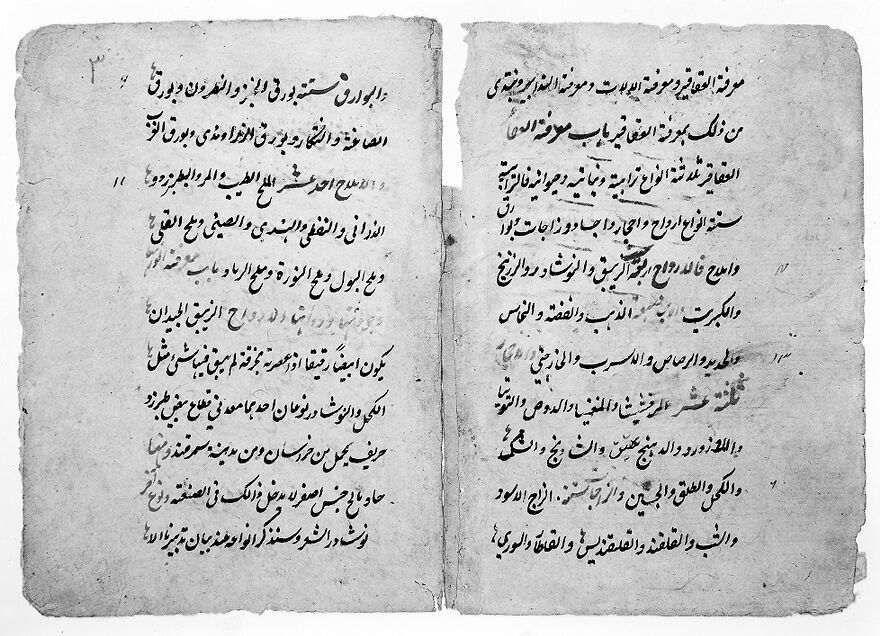 معرفة العقاقير ومعرفة الالات ومعرفة التدابير ونبتدى
من ذلك بمعرفة العقاقير باب معرفة العقا
العقاقير ثلاثة انواع ترابية ونباتيه وحيوانيه فالترابية
ستة انواع ارواح واحجار واجساد وزاجات وبوارق
واملاح فالارواح اربعة الزيبق والنوشادر والزرنيخ
والكبريت والاجساد سبعة الذهب والفضة والنحاس
والحديد والرصاص والاسرب والخارصينى والاحجار
ثلثة عشر المرقشيشا والمغنيسيا والدوص والتوتيا
واللازورد والدهنج والشاذنج والشك
والكحل والطلق والجبسين والزاجات ستة الزاج الاسود
والشب والقلقند والقلقنديس والقلقطار والسورى
٣
والبوارق ستة بورق الخبز والنطرون وبورق
الصاغة والتنكار وبورق الزراوندى وبورق الغرب
والاملاح احد عشر الملح الطيب والمر والطبرزد و
الاندرانى والنفطى والهندى والصينى وملح القلى
وملح البول وملح النورة وملح الرماد باب معرفة
الارواح الزيبق الجيدان
يكون ابيض رقيقا اذا عصرته بخرقة لم يبق فيها شئ مثل
الكحل والنوشادر نوعان احدهما معدنى قطاع ابيض طبرزد
حريف يحمل من خراسان ومن مدينة سمرقند
جنس اصفر لا يدخل فى الصنعة ونوع
نوشادر الشعر وسنذكر انواعه عند بيان تدبيرنا